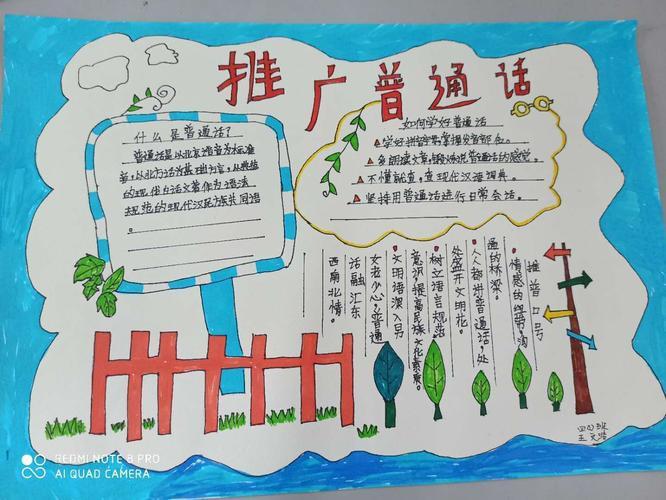 推广普通话
什么是普通话?
普通话是以北京语音为标准
音,以北方话为基础方言,以典范
的现代白话文著作为语法
规范的现代汉民族共同语
。
如何学好普通话
▲学好拼音掌握发音部位。
▲多朗读文章,锻炼说普通话的感觉。
▲不懂就查,查现代汉语词典。
▲坚持用普通话进行日常会话。
推普口号
情感的纽带,沟
通的桥梁。
人人都讲普通话,处
处盛开文明花。
树立语言规范
意识,提高民族文化素质。
文明语深入男
女老少心,普通
话融汇东
西南北情。
四(2)班
王文
REDMI NOTE 8 PRO
AI QUAD CAMERA